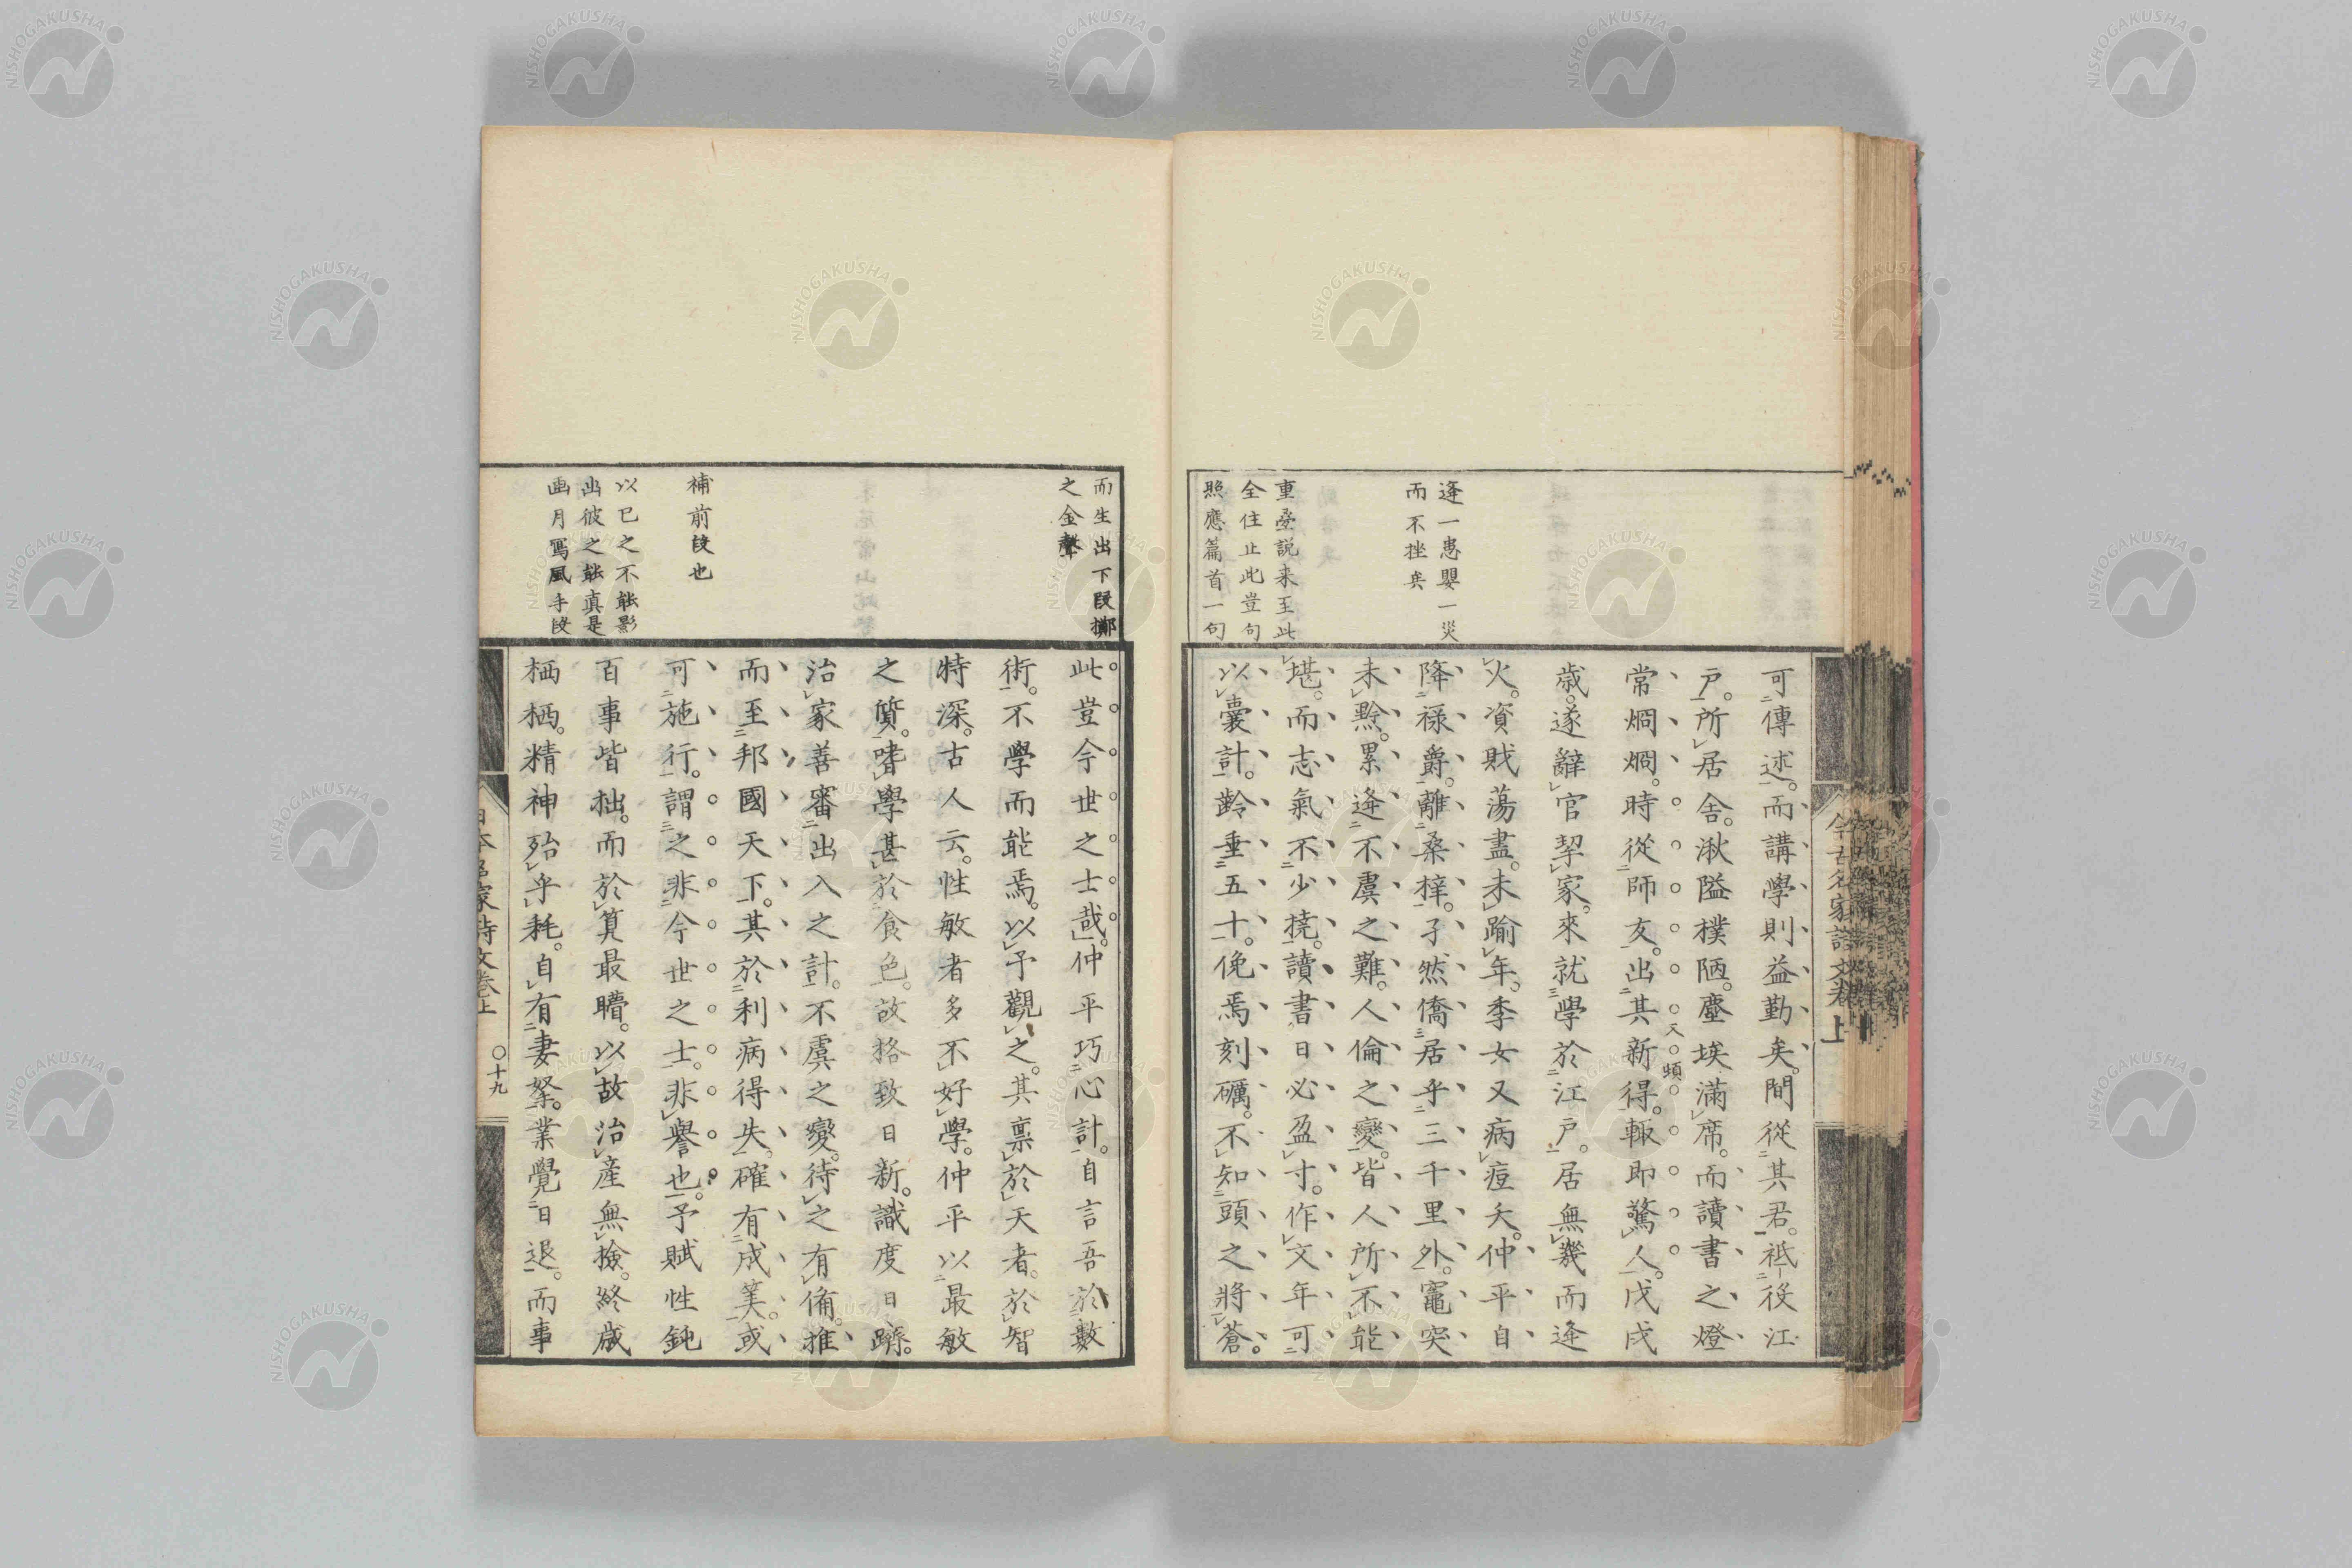 可傳述。而講學則益勤矣。間從其君。祗役江
戸。所居舍。湫隘樸陋。塵埃滿席。而讀書之燈
常烱烱。時從師友。出其新得。輒即驚人。戊戌
歳。遂辭官挈家。來就學於江戸。居無幾而逢
火。資貲蕩盡。未踰年。季女又病痘夭。仲平自
降祿爵。離桑梓。孑然僑居乎三千里外。竈突
未黔。累逢不虞之難。人倫之變。皆人所不能
堪。而志氣不少撓。讀書日必盈寸。作文年可
以囊計。齡垂五十。俛焉刻礪。不知頭之將蒼。
逢一患嬰一災
而不挫矣
重疊説来至此
全住止此豈句
照應篇首一句
此豈今世之士哉。仲平巧心計。自言吾於數
術。不學而能焉。以予觀之。其稟於天者。於智
特深。古人云。性敏者多不好學。仲平以最敏
之質。嗜學甚於食色。故格致日新。識度日躋。
治家善審出入之計。不虞之變。待之有備。推
而至邦國天下。其於利病得失。確有成筭。或
可施行。謂之非今世之士。非譽也。予賦性鈍
百事皆拙。而於算最矒。以故治産無撿。終歳
栖栖。精神殆乎耗。自有妻孥。業覺日退。而事
而生出下段擲
之金聲
補前段也
以已之不能影
出彼之能真是
画月寫風手段
家詩文卷上
〇十九
NISHOGAKUSHA